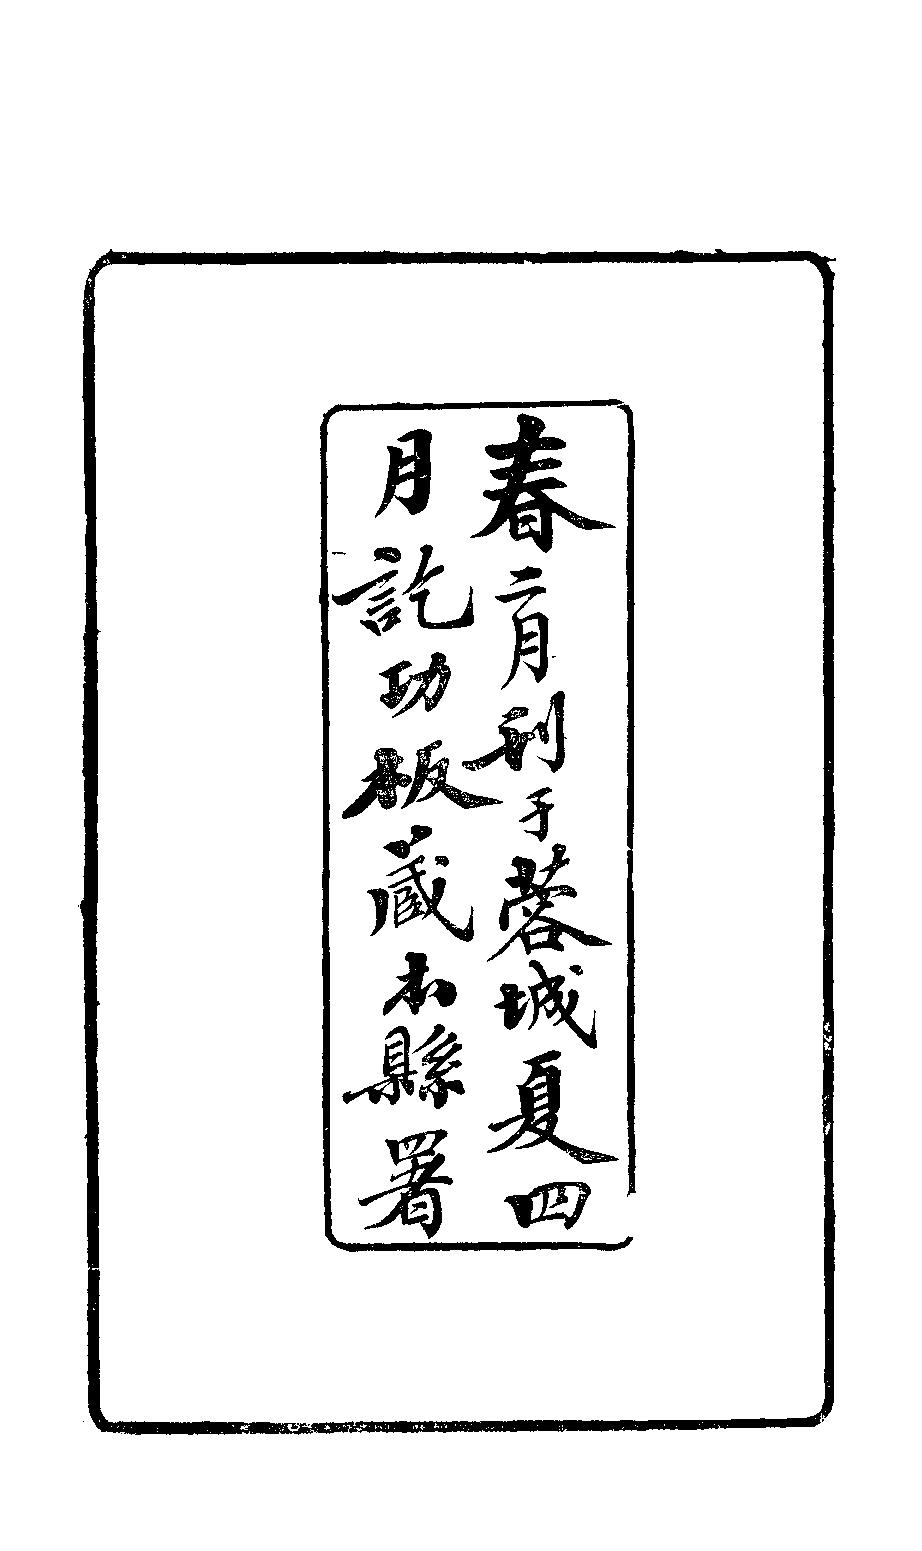 春二月刋于蓉城夏四
月訖功板藏本縣署